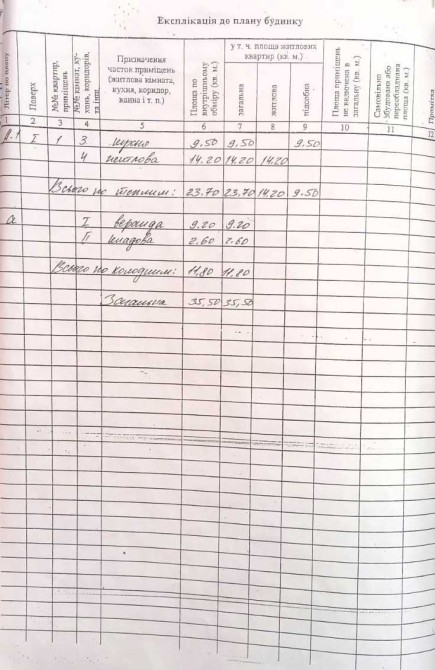 Експлікація до плану будинку
Літер по плану
Поверх
№№ квартир, приміщень
№№ кімнат, кухонь, коридорів, та інш.
Призначення часток приміщень (житлова кімната, кухня, коридор, ванна і т. п.)
Площа по внутрішньому обміру (кв. м.)
у т. ч. площа житлових квартир (кв. м.)
загальна
житлова
підсобна
Площа приміщень не включена в загальну (кв. м.)
Самовільно збудована або переобладнана площа (кв. м.)
Примітка
1 2 3 4 5 6 7 8 9 10 11 12
I 1 3 кухня 9.50 9.50 9.50
4 житлова 14.20 14.20 14.20
Всього по теплим: 23.70 23.70 14.20 9.50
а I веранда 9.20 9.20
II кладова 2.60 2.60
Всього по холодним: 11,80 11,80
Загальна 35,50 35,50